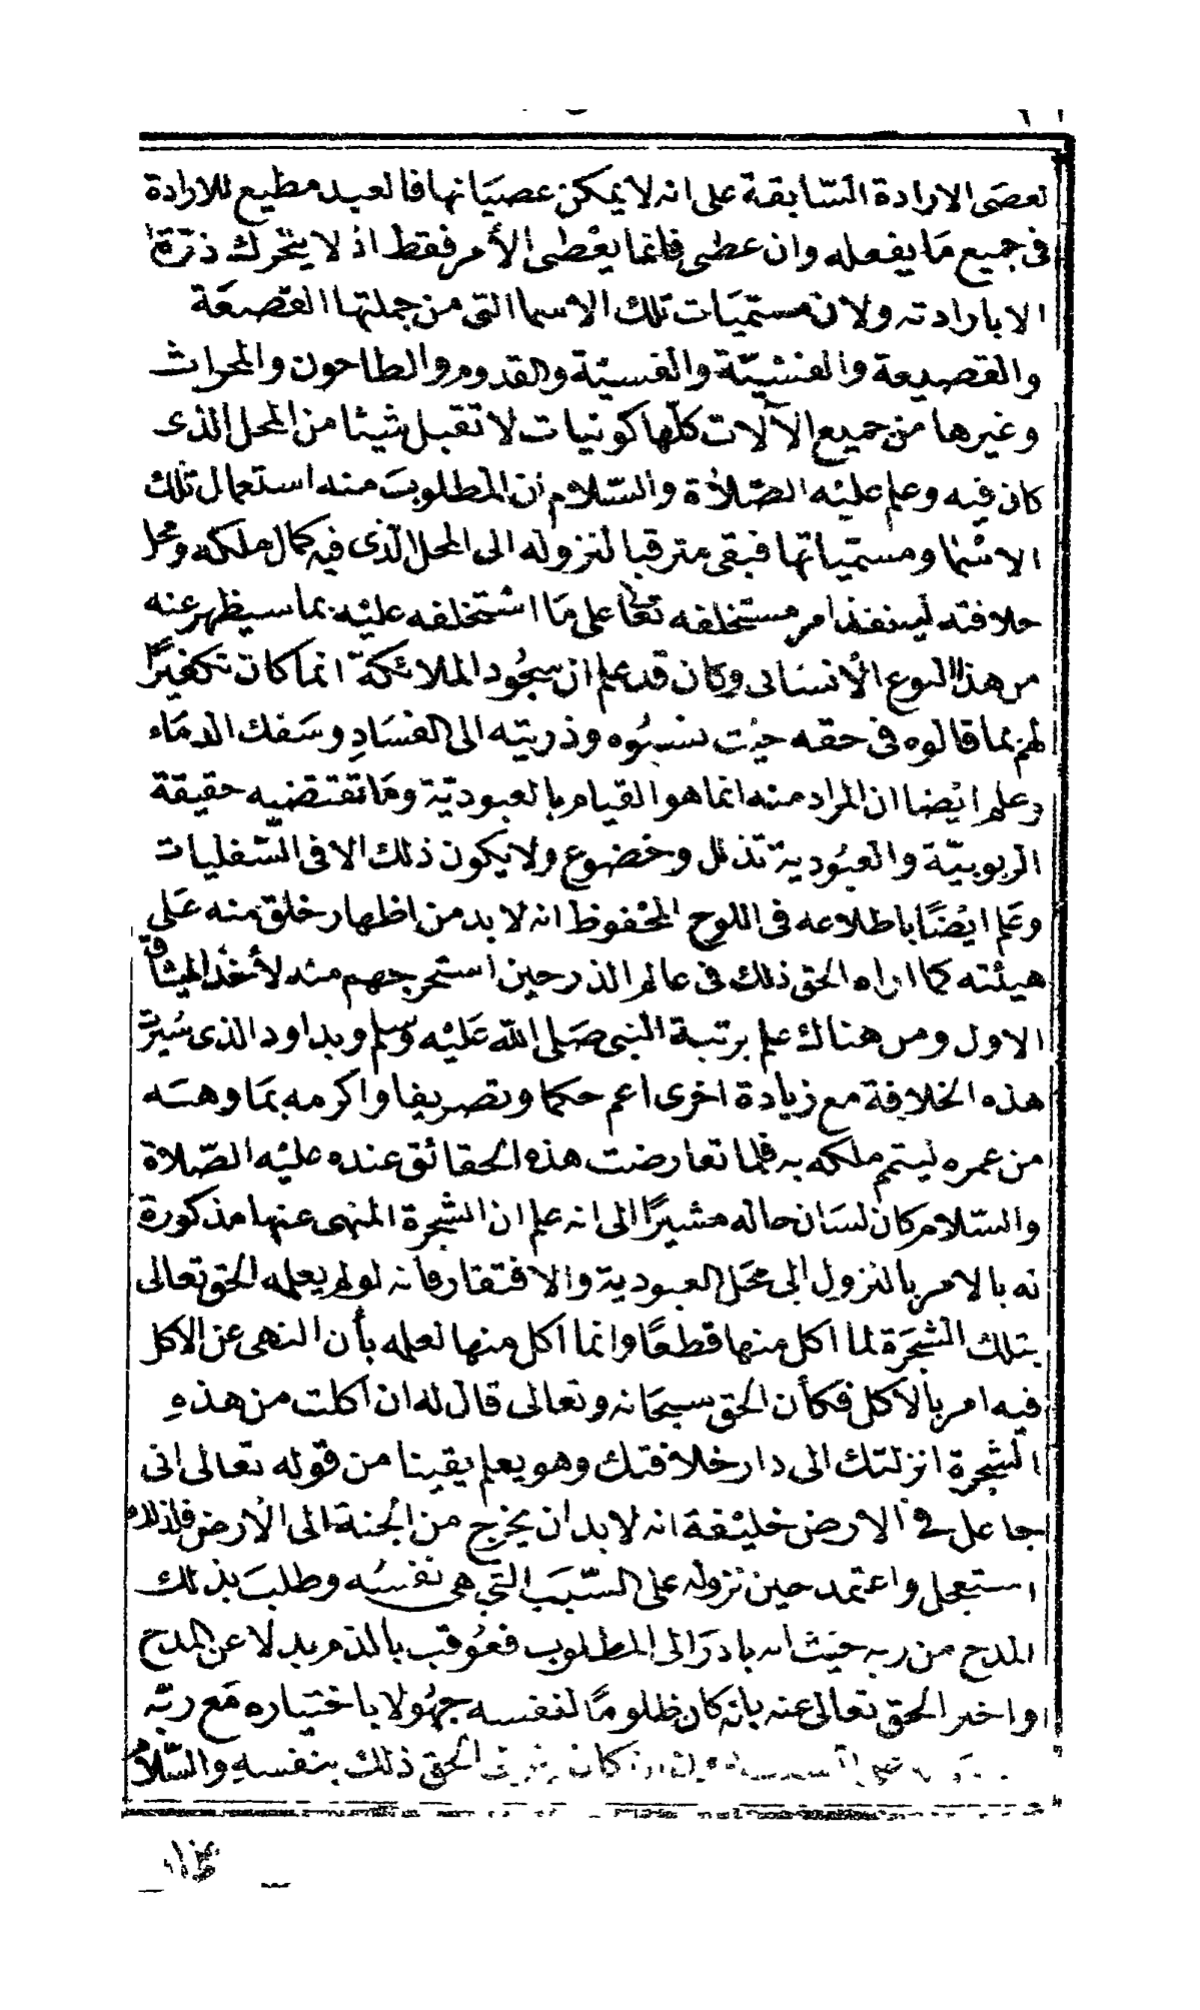 تعصى الارادة السّابقة على انه لا يمكن عصيَانها فالعبد مطيع للارادة
فى جميع مَا يفعله وان عطى فانما يعْطى الأمر فقط اذ لا يتحرك ذرّة
الا بارادته ولان مستميَات تلك الاسما التى من جملتها القصعَة
والقصيعة والفنشيّة والفسيّة والقدوم والطاحون والمحراث
وغيرها من جميع الآلات كلّها كونيات لا تقبل شيئا من المحل الذى
كان فيه وعلم عليْه الصّلاة والسّلام ان المطلوبَ منه استعمال تلك
الاسْما ومستمياتها فبقى مترقبا لنزوله الى المحل الذى فيه كمال ملكه ومحل
خلافته لينفذ امر مستخلفه تعَا على مَا استخلفه عليْه بما سيظهر عنه
من هذا النوع الأنسَانى وكان قد علم ان سجُود الملائكة انما كان تكفيرًا
لهم بما قالوه فى حقه حيْث نسبُوه وذريته الى الفسَادِ وسَفك الدمَاء
وعلم ايْضا ان المراد منه انما هو القيام بالعبوديّة ومَا تقتضيه حقيقة
الربوبيّة والعبُودية تذلل وخضوع ولا يكون ذلك الا فى السّفليات
وعَلم ايْضًا باطلاعه فى اللوح المحْفوظ انه لا بد من اظهار خلق منه عَلى
هيئته كما اراه الحق ذلك فى عالم الذر حين استخرجهم منه لأخذ الميثاق
الاول ومن هناك علم برتبة النبى صَلى الله عَليْه وَسلم وبداود الذى سُيرَث
هذه الخلافة مع زيادة اخرى اعم حكما وتصريفا واكرمه بمَا وهبه
من عمره ليتم ملكه به فلما تعارضت هذه الحقائق عنده عليْه الصّلاة
والسّلام كان لسَان حاله مشيرًا الى انه علم ان الشجرة المنهى عنها مذكورة
له بالامر بالنزول الى محَل العبودية والافتقار فانه لو لم يعلمه الحق تعالى
بتلك الشجَرة لما اكل منها قطعًا وانما اكل منها لعلمه بأن النهى عن الاكل
فيه امر بالاكل فكأن الحق سبحانه وتعالى قال له ان اكلت من هذهِ
الشجرة انزلتك الى دار خلافتك وهو يعلم يقينا من قوله تعالى انى
جاعل فى الارض خليْفة انه لا بد ان يخرج من الجنة الى الأرض فلذلك
استعجل واعتمد حين نزوله على السّبَب التى هى نفسُه وطلبَ بذلك
المدح من ربه حيْث انه بادرَ الى المطلوب فعُوقب بالذم بدلا عن المدح
واخبر الحق تعالى عنه بانه كان ظلومًا لنفسه جهُولا باختياره مَع ربّه
كان الحق ذلك بنفسهِ والسّلام